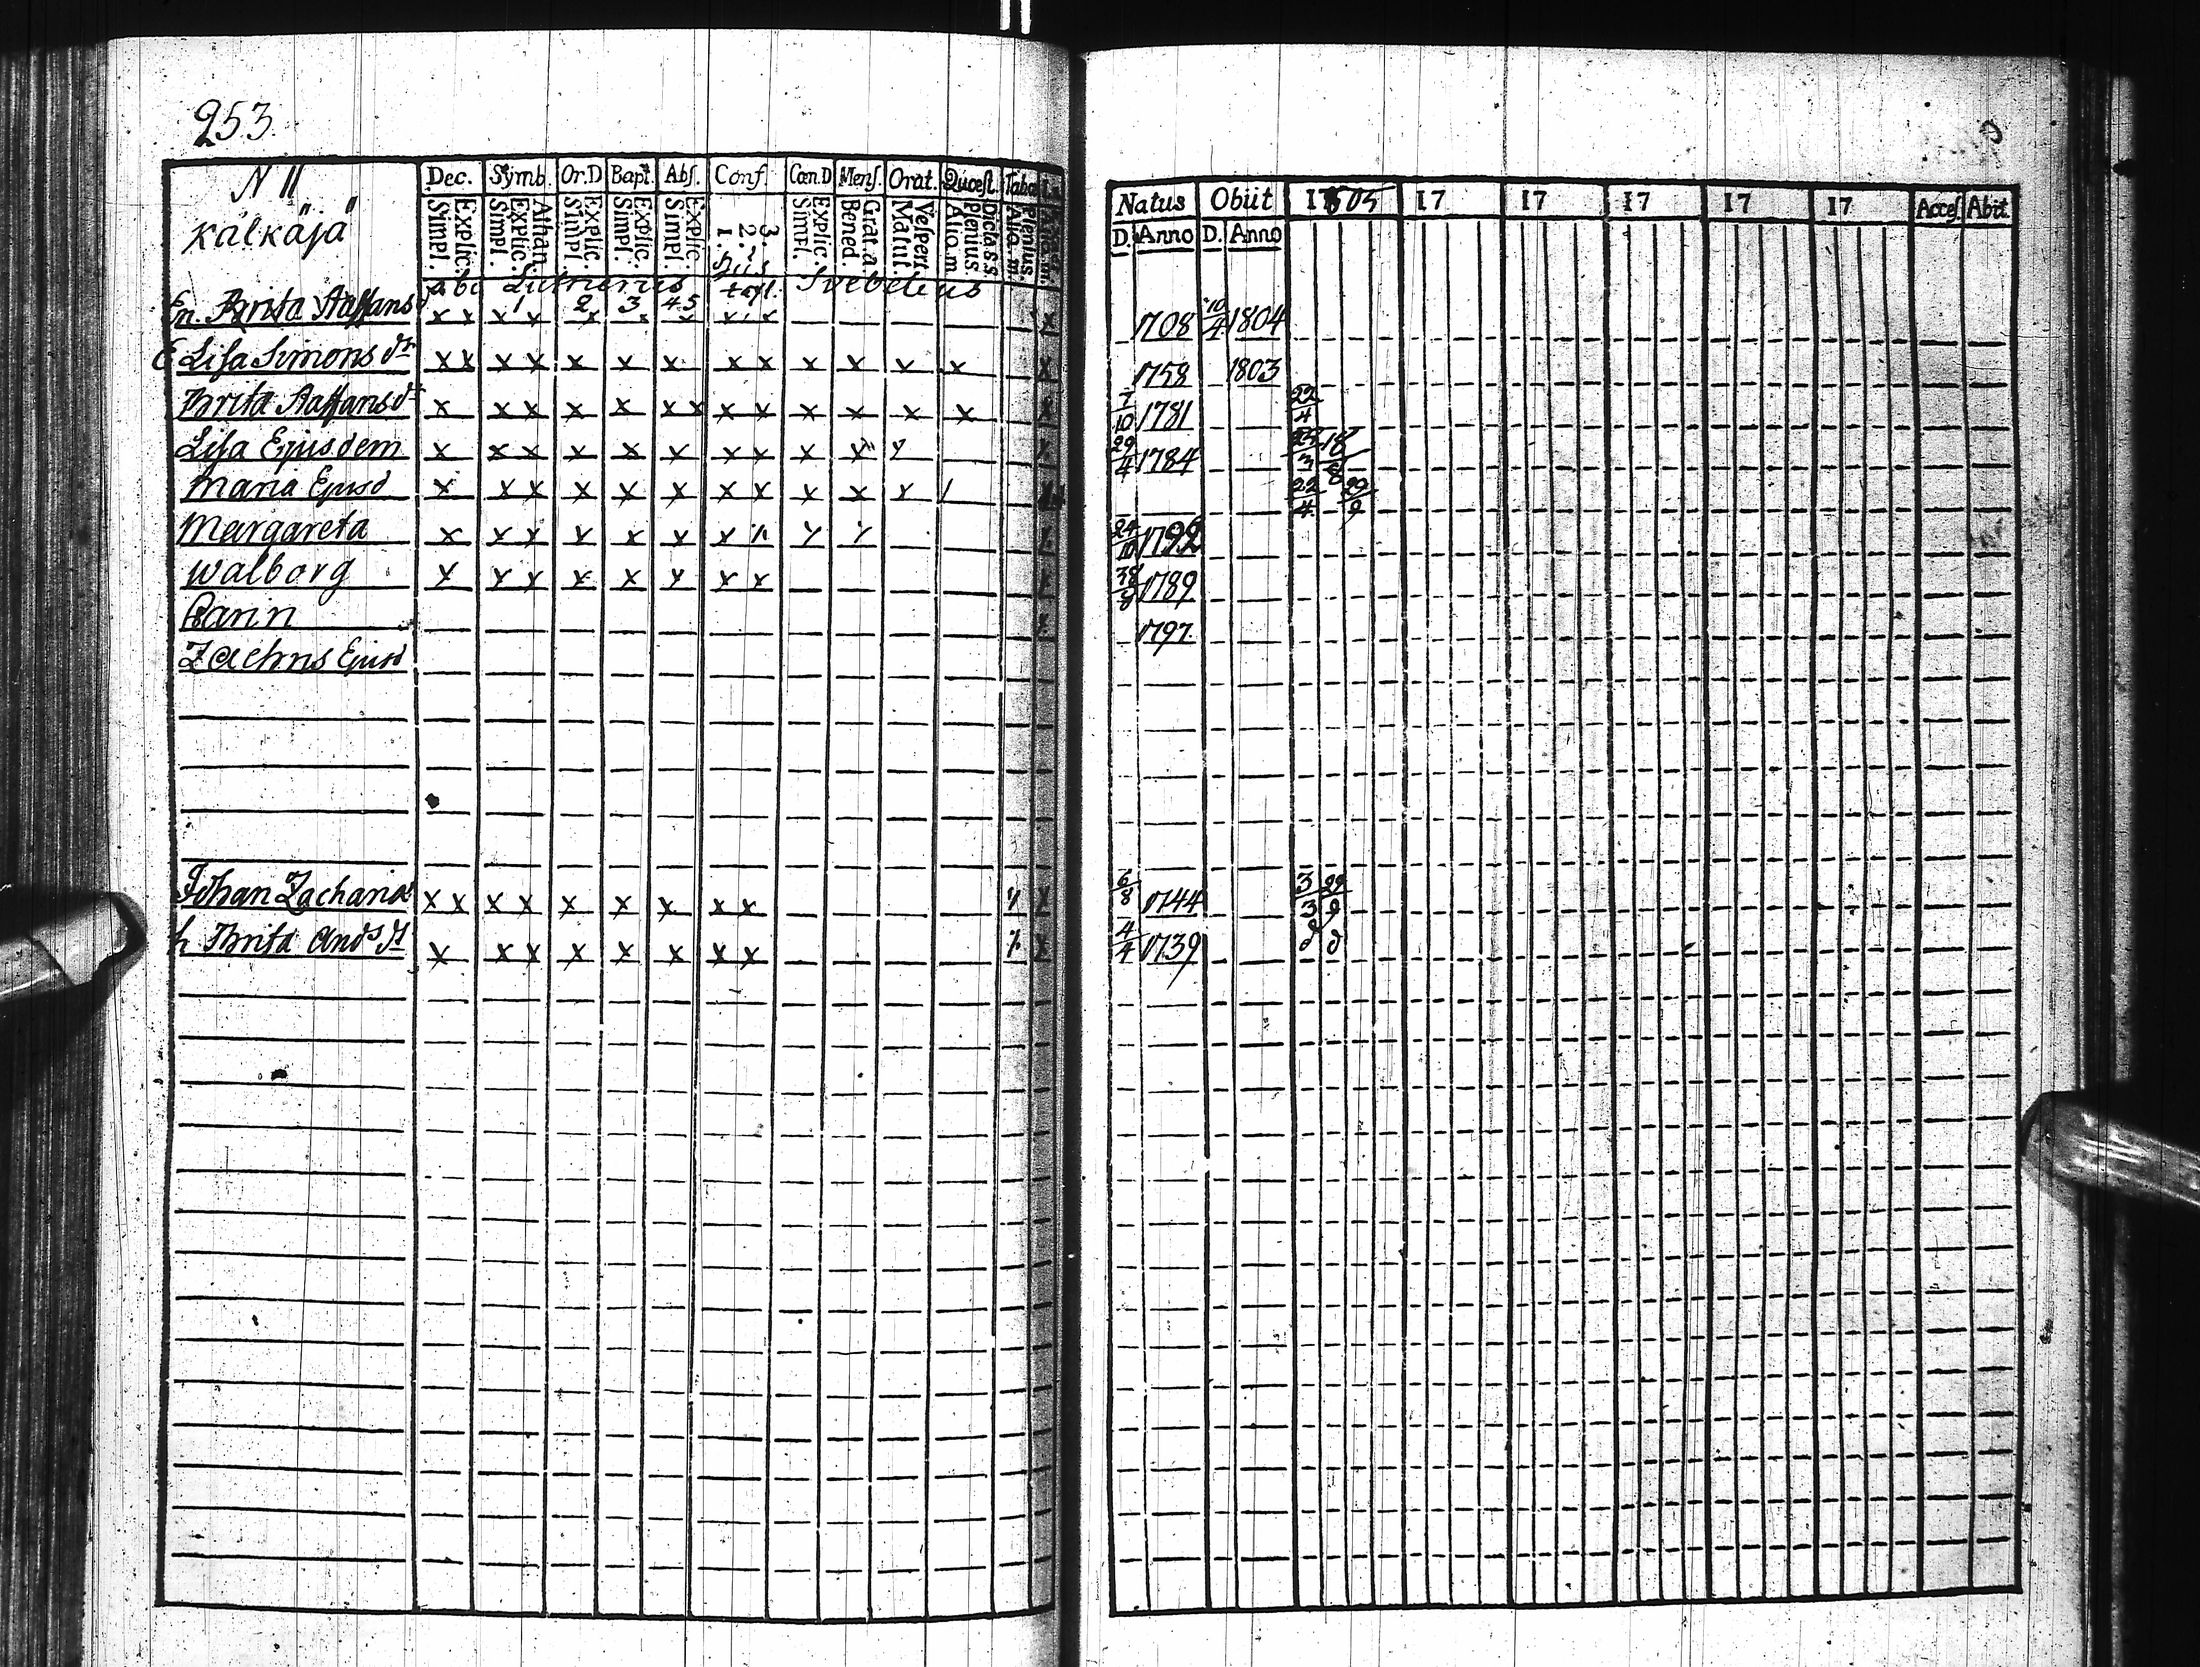 253
N 11
Kälkäjä
Dec. Symb. Or.D Bapt. Abs. Conf. Cœn.D Mens. Orat. Quœst. Taba
Explic. Simpl. Athan. Explic. Simpl. Explic. Simpl. Explic. Simpl. Explic. Simpl. 3. 2. 1. Explic. Simpl. Grat. a. Bened. Vespert. Matut. Dicta s.s. Plenius. Alio. m. Plenius. Alio. m.
abc Lutherus hus tafl. Svebelius
1 2 3 4 5
En. Brita Staffans d
E Lisa Simons dr
Brita Staffans dr
Lisa Ejusdem
Maria Ejusd
Margareta
Walborg
Carin
Zachris Ejusd
Johan Zacharias
h Brita Ands dr
Natus Obiit 1805 17 17 17 17 17 Acces. Abit
D. Anno D. Anno
1708 10/4 1804
1758 1803
7/10 1781 22/4
29/4 1784 18/8
22/4 29/9
24/10 1792
1789
1797
6/8 1744 3/3 29/9
4/4 1739 d d